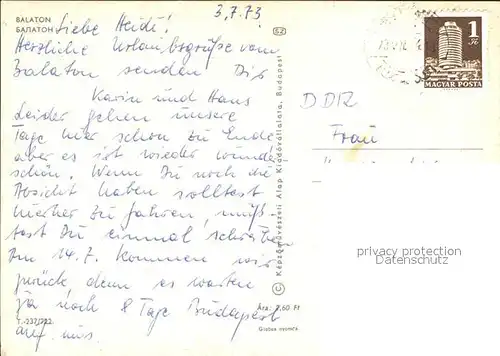 BALATON
БАЛАТОН
3.7.73
Liebe Heidi!
Herzliche Urlaubsgrüße vom
Balaton senden Dir
Karin und Hans
Leider gehen unsere
Tage hier schon zu Ende
aber es ist wieder wunder
schön. Wenn Du noch die
Absicht haben solltest
hierher zu fahren, müß-
test Du einmal schreiben
Am 14.7. kommen wir
zurück, denn es warten
ja noch 8 Tage Budapest
auf uns
T-237/722
Ára: 2,60 Ft
Globus nyomda
Képzőművészeti Alap Kiadóvállalata, Budapest
DDR
Frau
1
Ft
MAGYAR POSTA
privacy protection
Watermark